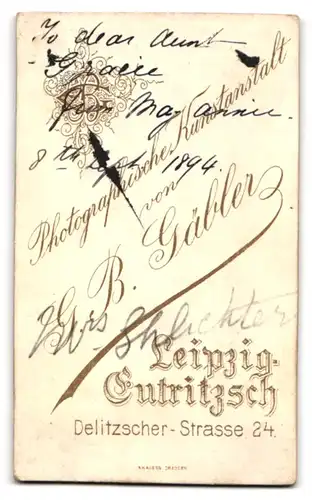 To dear Aunt
Gracie
from May Annie.
8th Sept. 1894.
Photographische Kunstanstalt
von
B. Gäbler
Mrs
Leipzig-
Eutritzsch
Delitzscher-Strasse 24.